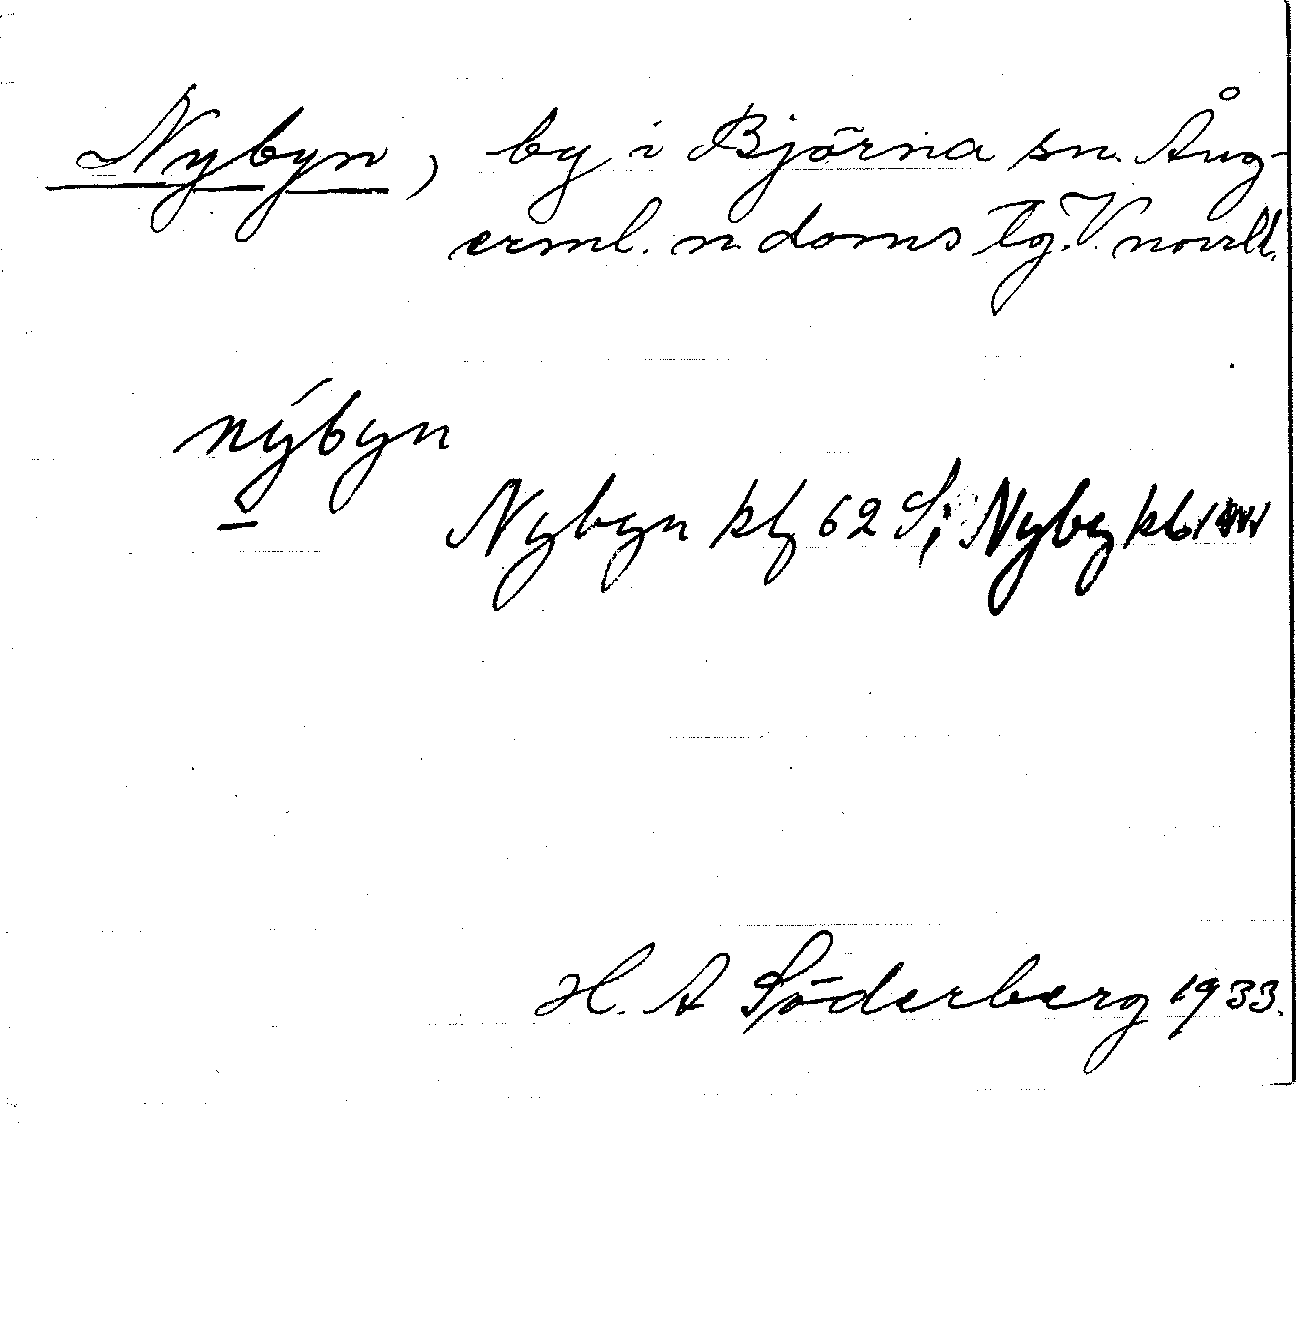 Nybyn, by i Björna sn. Ång-
erml. n. doms Tg. V. norrl.
nýbyn
Nybyn kb 62 S; Nyby kb
H. A Söderberg 1933.